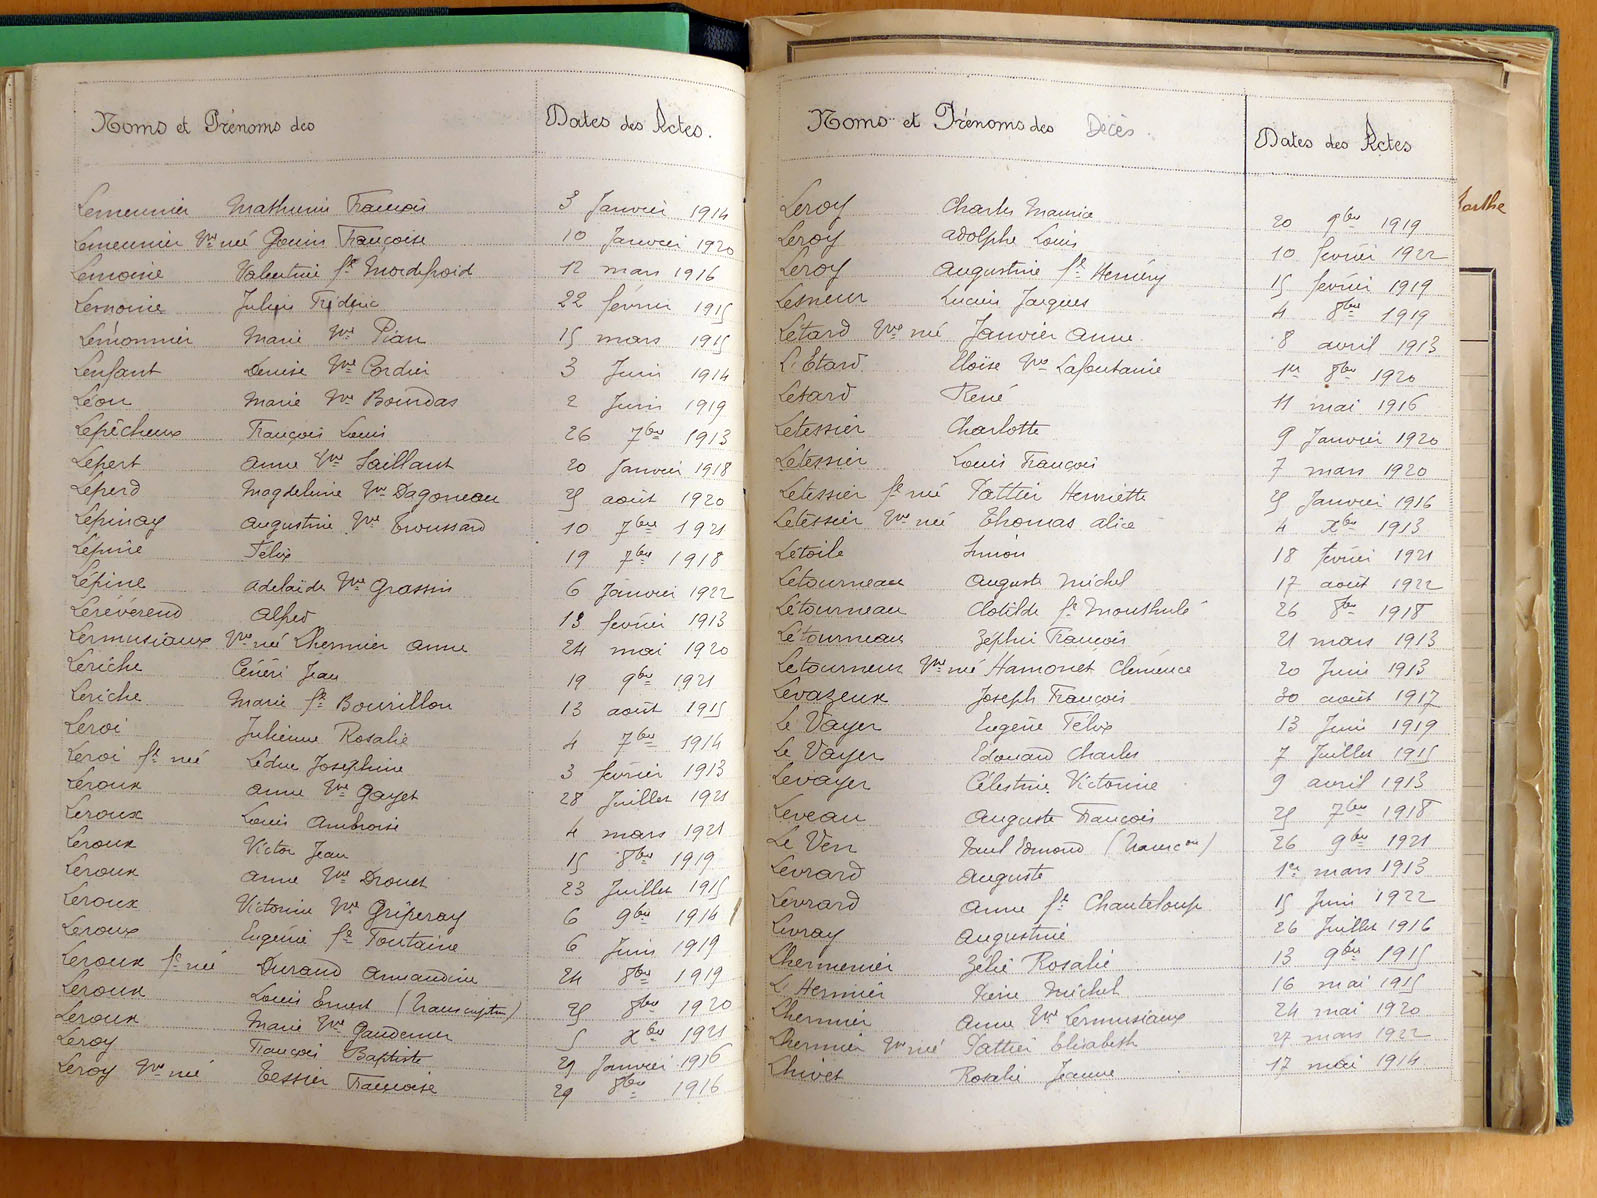 Noms et Prénoms des
Dates des Actes.
Lemeunier Mathurin François 3 Janvier 1914
Lemeunier Vve née Gouin Françoise 10 Janvier 1920
Lemoine Valentine fe Mordefroid 12 mars 1916
Lemoine Julien Frédéric 22 février 1915
Lemonnier Marie Vve Pian 15 mars 1915
Lenfant Denise Vve Cordier 3 Juin 1914
Léon Marie Vve Bourdas 2 Juin 1919
Lepêcheux François Louis 26 7bre 1913
Lepert Anne Vve Saillant 20 Janvier 1918
Leperd Magdeleine Vve Dagoneau 25 août 1920
Lepinay Augustine Vve Troussard 10 7bre 1921
Lépine Felix 19 7bre 1918
Lépine Adelaïde Vve Grassin 6 Janvier 1922
Lerévérend Alfred 13 février 1913
Lermusiaux Vve née Lhermier Anne 24 mai 1920
Leriche Cénéri Jean 19 9bre 1921
Leriche Marie fe Bourillon 13 août 1915
Leroi Julienne Rosalie 4 7bre 1914
Leroi fe née Leduc Josephine 3 février 1913
Leroux Anne Vve Gayet 28 Juillet 1921
Leroux Louis Ambroise 4 mars 1921
Leroux Victor Jean 15 8bre 1919
Leroux Anne Vve Drouet 23 Juillet 1915
Leroux Victorine Vve Griperay 6 9bre 1914
Leroux Eugénie fe Fontaine 6 Juin 1919
Leroux fe née Durand Amandine 24 8bre 1919
Leroux Louis Ernest (Transcription) 25 8bre 1920
Leroux Marie Vve 5 Xbre 1921
Leroy François Baptiste 29 Janvier 1916
Leroy Vve née Tessier Françoise 29 8bre 1916
Noms et Prénoms des Décès.
Dates des Actes
Leroy Charles Maurice 20 9bre 1919
Leroy Adolphe Louis 10 février 1922
Leroy Augustine fe Heméry 15 février 1919
Lesneur Lucien Jacques 4 8bre 1919
Letard Vve née Janvier Anne 8 avril 1913
L'Etard Eloïse Vve Lafontaine 1er 8bre 1920
Letard René 11 mai 1916
Letessier Charlotte 9 Janvier 1920
Letessier Louis François 7 mars 1920
Letessier fe née Pattier Henriette 25 Janvier 1916
Letessier Vve née Thomas Alice 4 Xbre 1913
Letoile Simon 18 février 1921
Letourneau Auguste Michel 17 août 1922
Letourneau Clotilde fe Monthulé 26 8bre 1918
Letourneau Zéphir François 21 mars 1913
Letourneur Vve née Hamonet Clémence 20 Juin 1913
Levazeux Joseph François 30 août 1917
Le Vayer Eugène Felix 13 Juin 1919
Le Vayer Edouard Charles 7 Juillet 1915
Levayer Célestine Victorine 9 avril 1913
Leveau Auguste François 25 7bre 1918
Le Ven Paul Edmond (Transcon) 26 9bre 1921
Levrard Auguste 1er mars 1913
Levrard Anne fe Chanteloup 15 Juin 1922
Livray Augustine 26 Juillet 1916
Lhermenier Zélie Rosalie 13 9bre 1915
L'Hermier Pierre Michel 16 mai 1915
Lhermier Anne Vve Lermusiaux 24 mai 1920
Lhermier Vve née Pattier Elisabeth 27 mars 1922
Lhivet Rosalie Jeanne 17 mai 1914
Sarthe